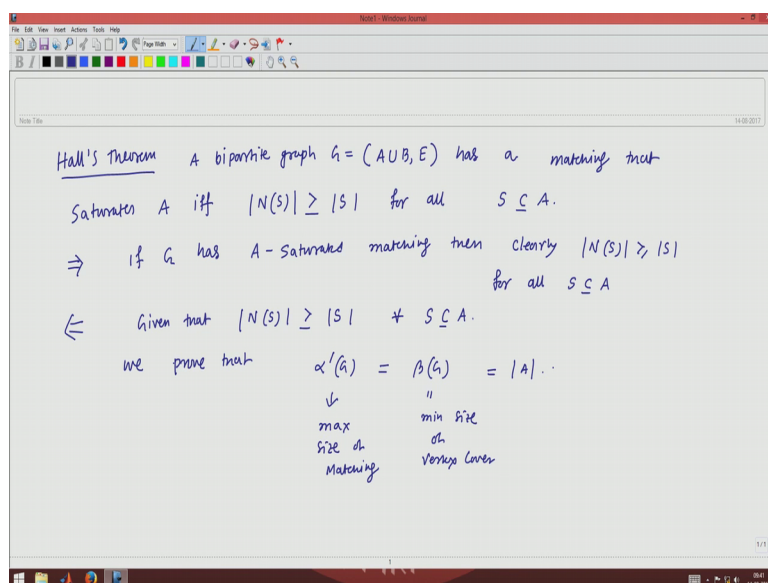 Note1 - Windows Journal
File Edit View Insert Actions Tools Help
Page Width
B I
Note Title
14-08-2017
Hall's Theorem A bipartite graph G = (A∪B, E) has a matching that
Saturates A iff |N(S)| ≥ |S| for all S ⊆ A.
⇒ if G has A-Saturated matching then clearly |N(S)| ≥ |S|
for all S ⊆ A
⇐ Given that |N(S)| ≥ |S| ∀ S ⊆ A.
we prove that α'(G) = β(G) = |A| ..
↓ "
max min size
size of of
Matching Vertex Cover
1/1
1
09:41